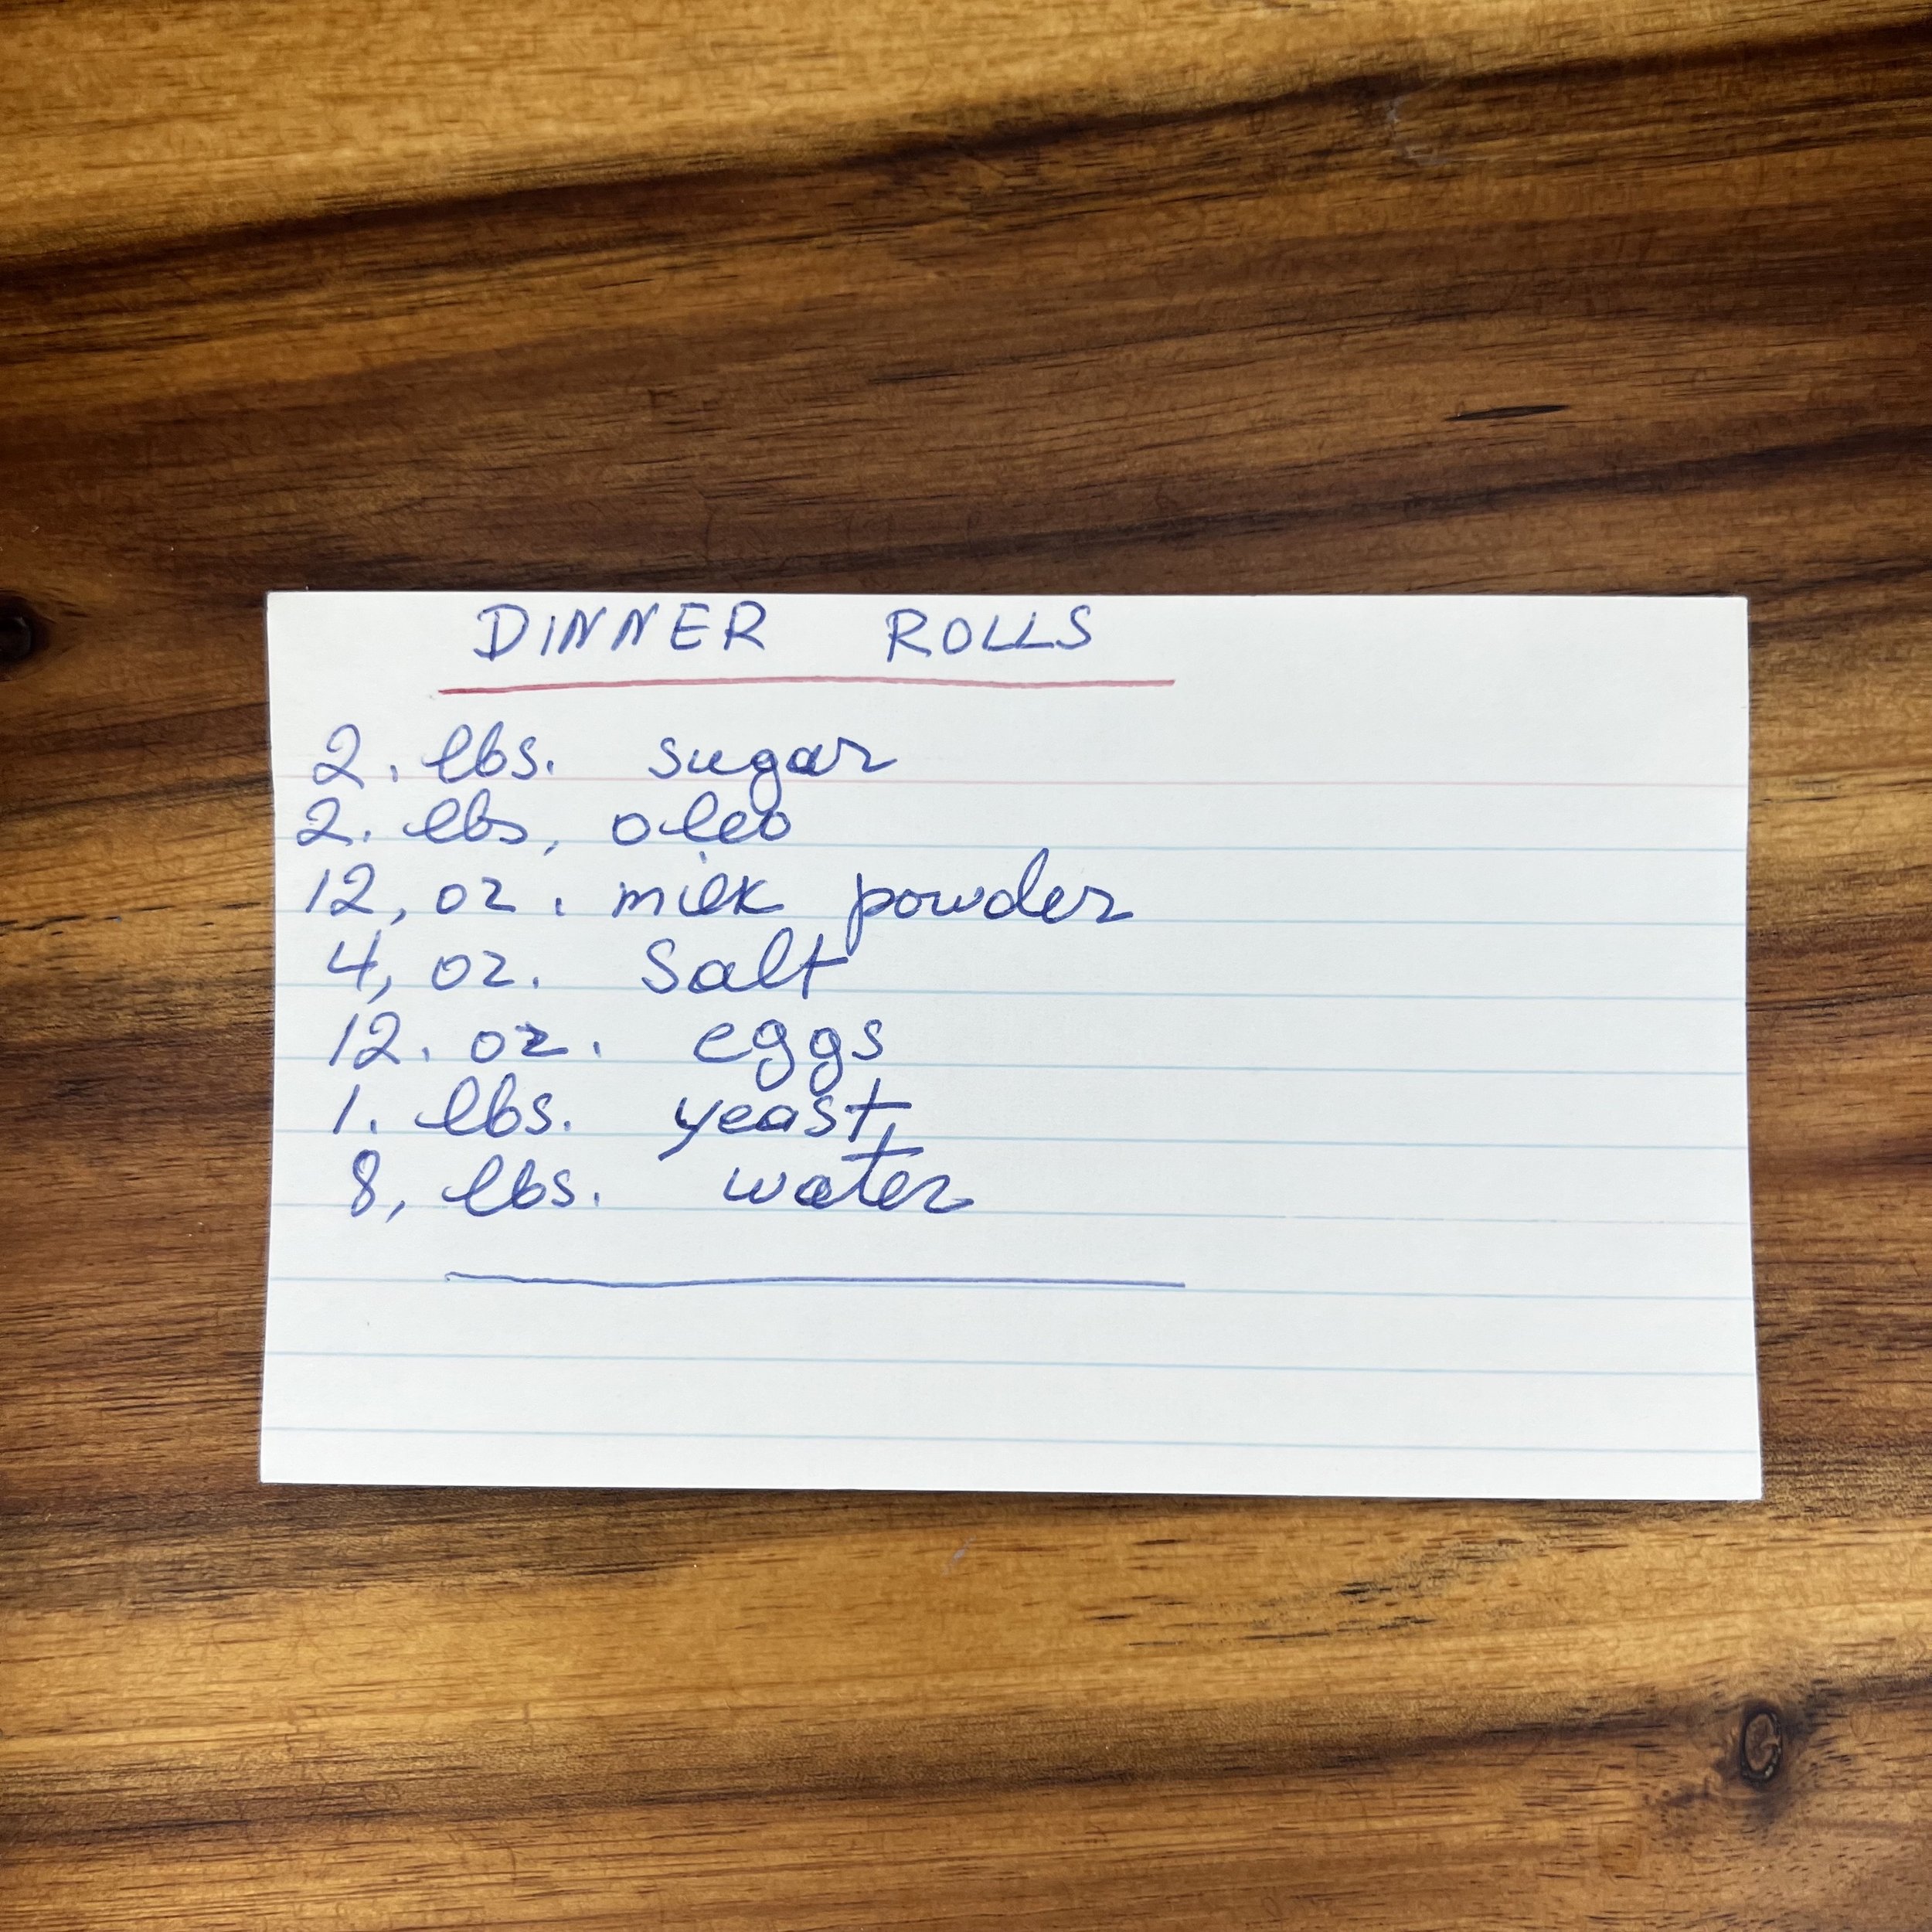 DINNER ROLLS
2. lbs. sugar
2. lbs, oleo
12, oz. milk powder
4, oz. Salt
12. oz. eggs
1. lbs. yeast,
8, lbs. water